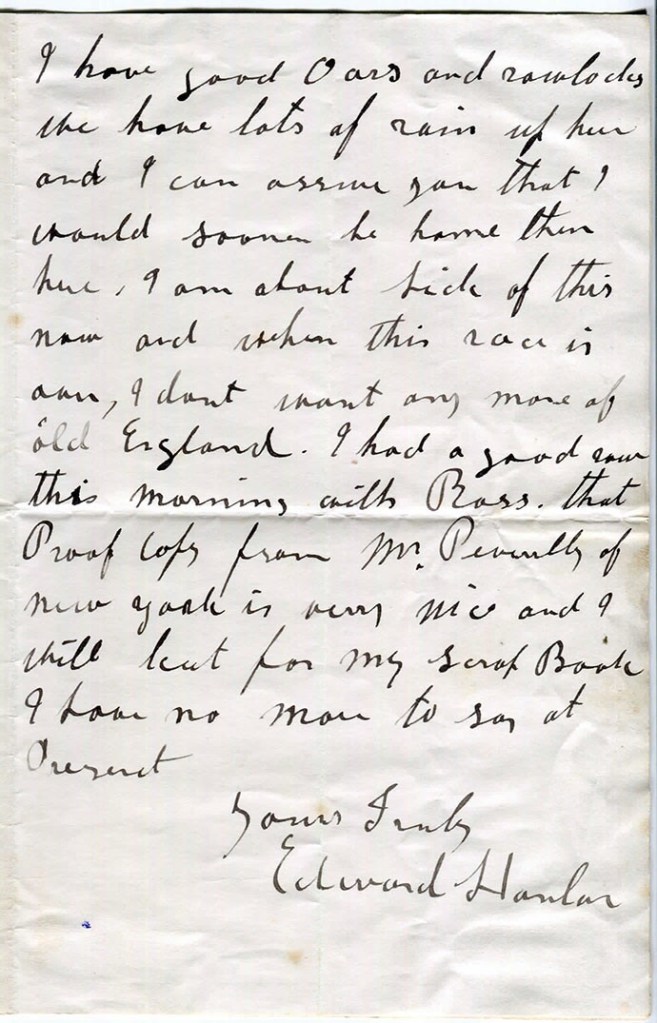 I have good Oars and rowlocks
we have lots of rain up here
and I can assure you that I
would sooner be home then
here, I am about sick of this
now and when this race is
over, I dont want any more of
old England. I had a good row
this morning with Ross. that
Proof Copy from Mr. Peverelly of
new york is very nice and I
will keet for my scrap Book
I have no more to say at
Present
yours Truly
Edward Hanlan